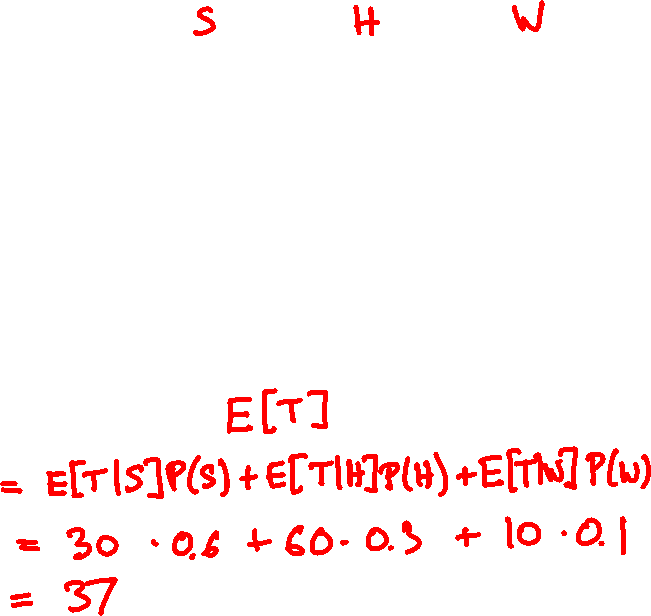 S H W
E[T]
= E[T|S]P(S) + E[T|H]P(H) + E[T|W]P(W)
= 30 · 0.6 + 60 · 0.3 + 10 · 0.1
= 37